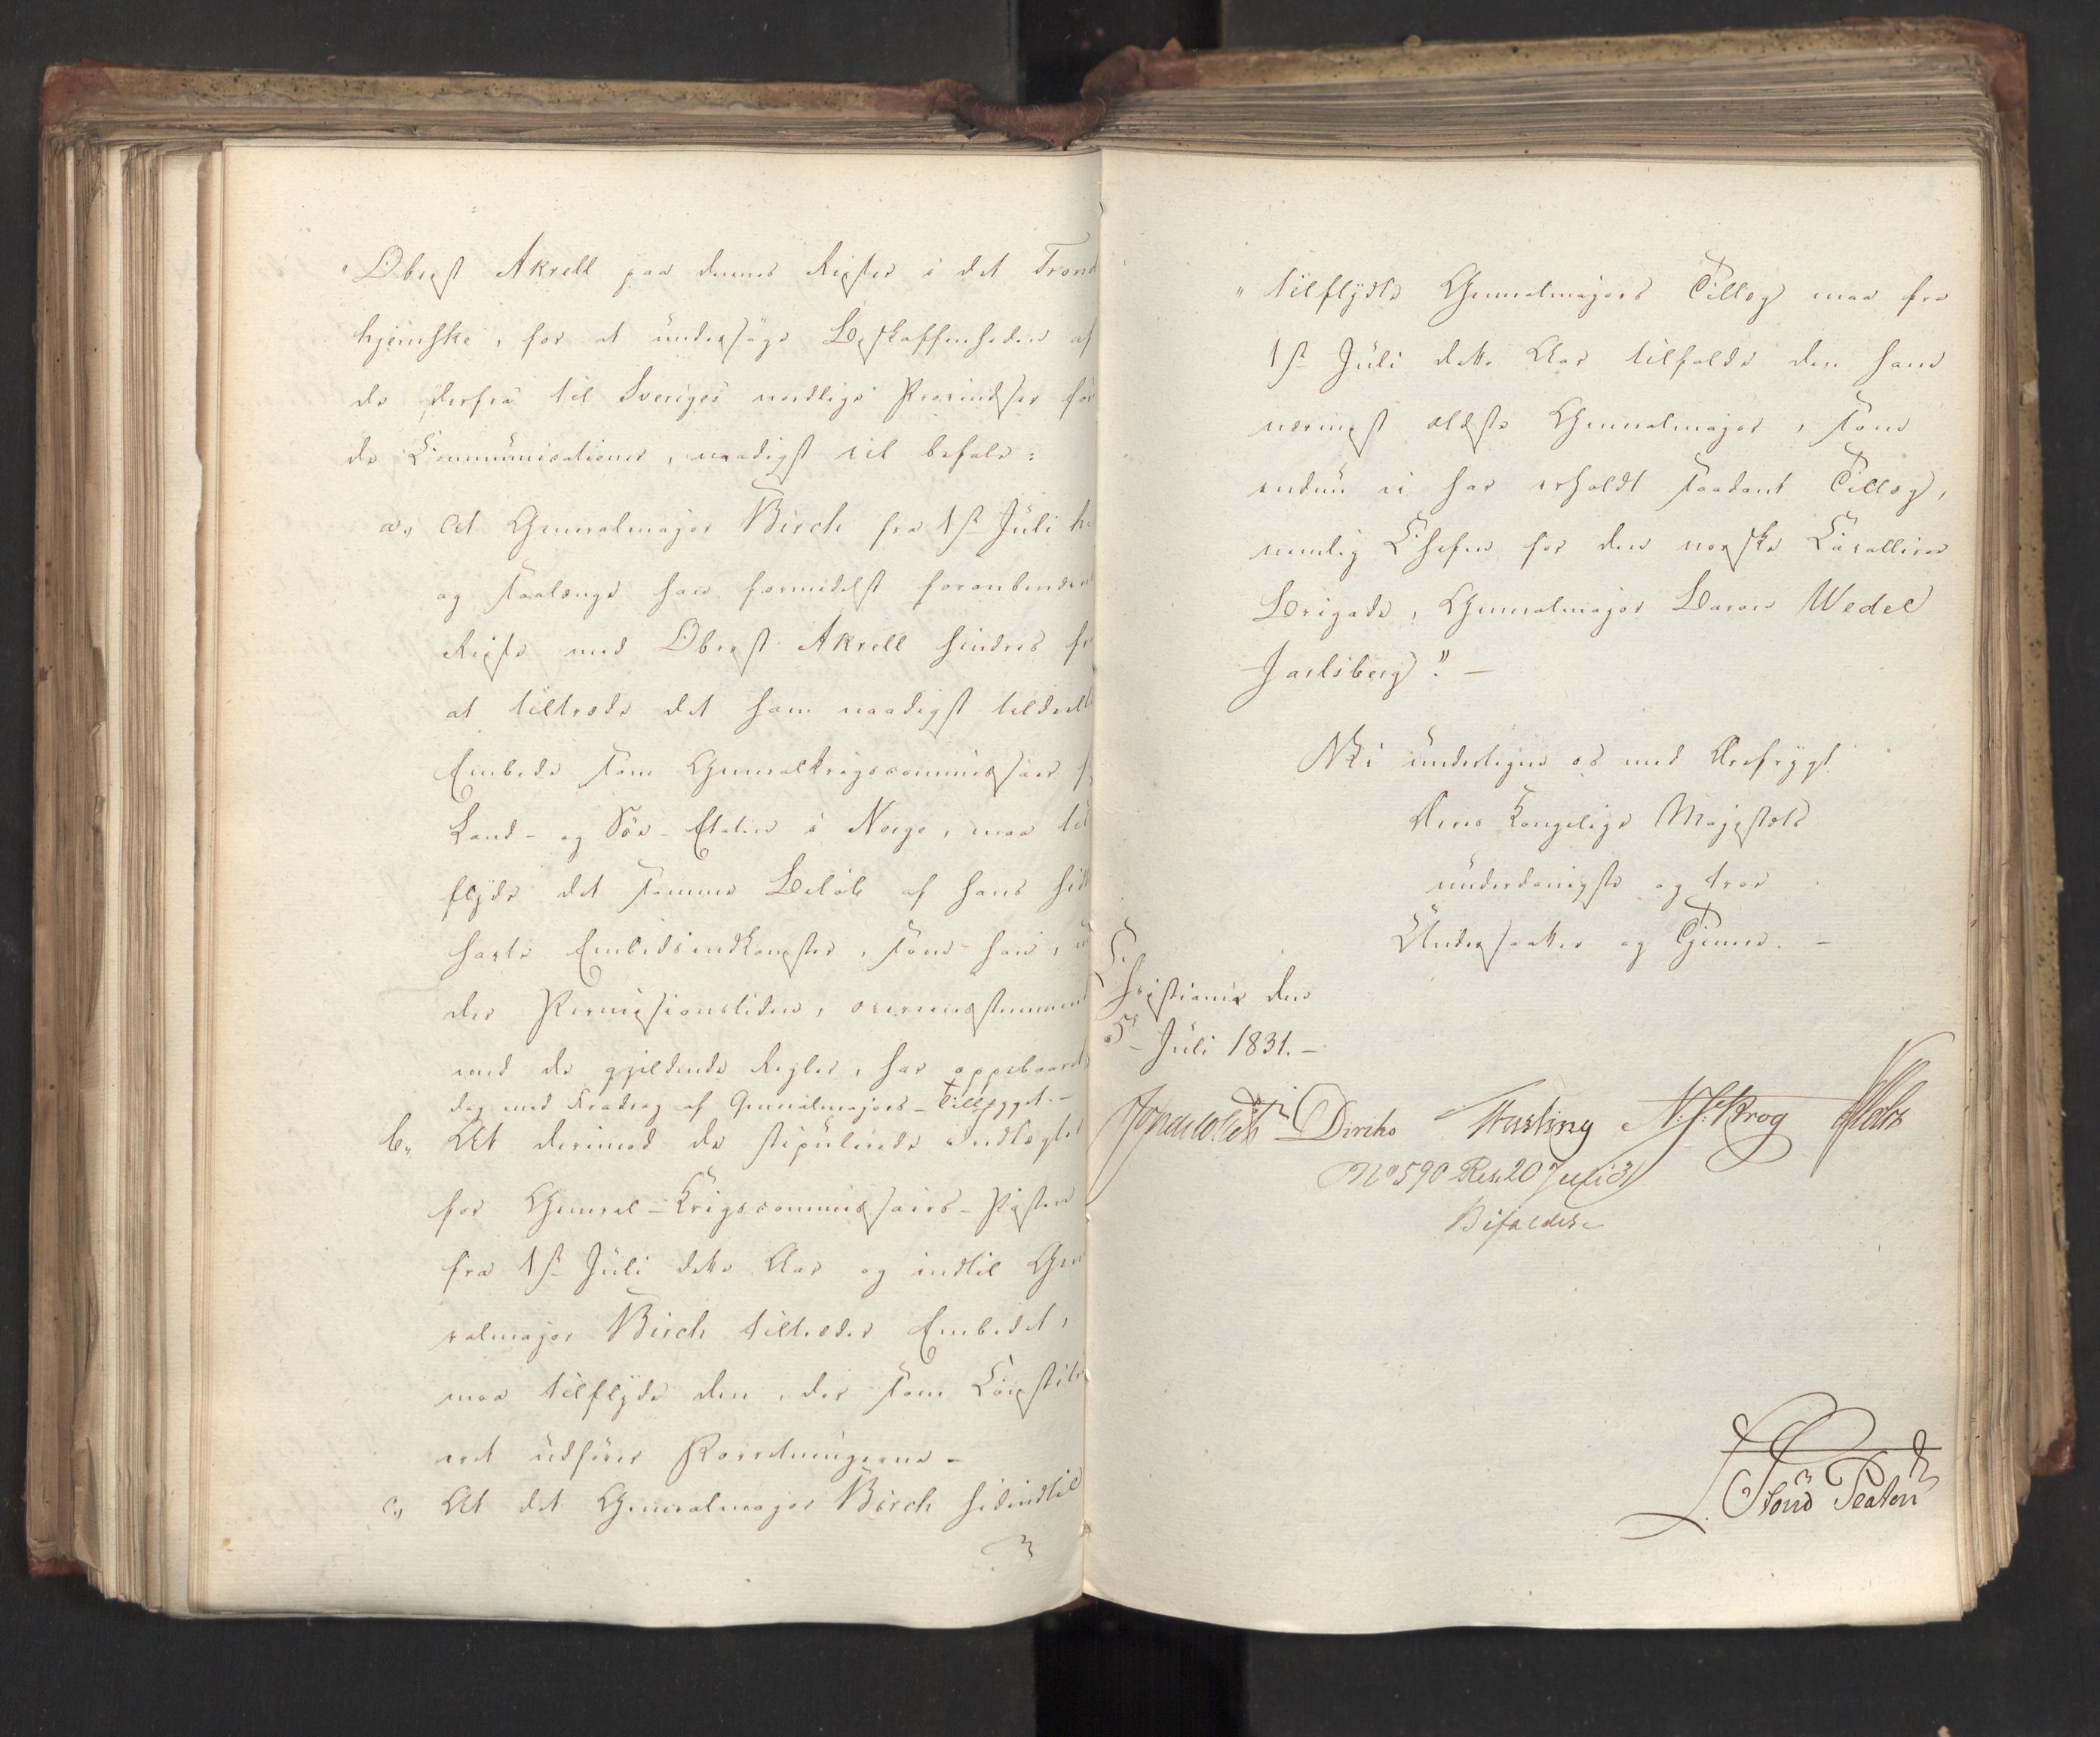 "Oberst Akrell paa dennes Reiser i det Trond
hjemske, for at undersøge Beskaffenheden af
de derfra til Sveriges nordlige Provindser før
de Communicationer, naadigst vil befale:
a, At Generalmajor Birch fra 1ste Juli h
og saalænge han formedelst foranbemeldte
Reise med Oberst Akrell hindres fr
at tiltræde det ham naadigst tildeelte
Embede som Generalkrigscommissair f
Land- og Søe-Etaten i Norge, maa til
flyde det samme Beløb af hans hid
havte Embedsindkomster, som han, u
der Permissionstiden, overeensstemmend
med de gjeldende Regler, har oppebaaret,
dog med Fradrag af Generalmajors-Tillægget.-
b, At derimod de stipulerede Indtægter
for General-Krigscommissairs-Posten
fra 1ste Juli dette Aar og indtil Gen
ralmajor Birch tiltræder Embedet,
maa tilflyde den, der som Constitu
eret udfører Forretningerne.-
c, At det Generalmajor Birch hidindtil
" tilflydte Generalmajors Tillæg maa fra
1ste Juli dette Aar tilfalde den ham
nærmest ældste Generalmajor, som
endnu ei har erholdt saadant Tillæg,
nemlig Chefen for den norske Cavallerie
Brigade, Generalmajor Baron Wedel
Jarlsberg". -
Vi undertegne os med Ærefrygt
Deres Kongelige Majestæts
underdanigste og troe
Undersaatter og Tjenere. -
Christiania den
5te Juli 1831. -
Jonas Collett Diriks Fasting N. J. Krog
No 590 Res. 20 Juli 31
Bifaldes.